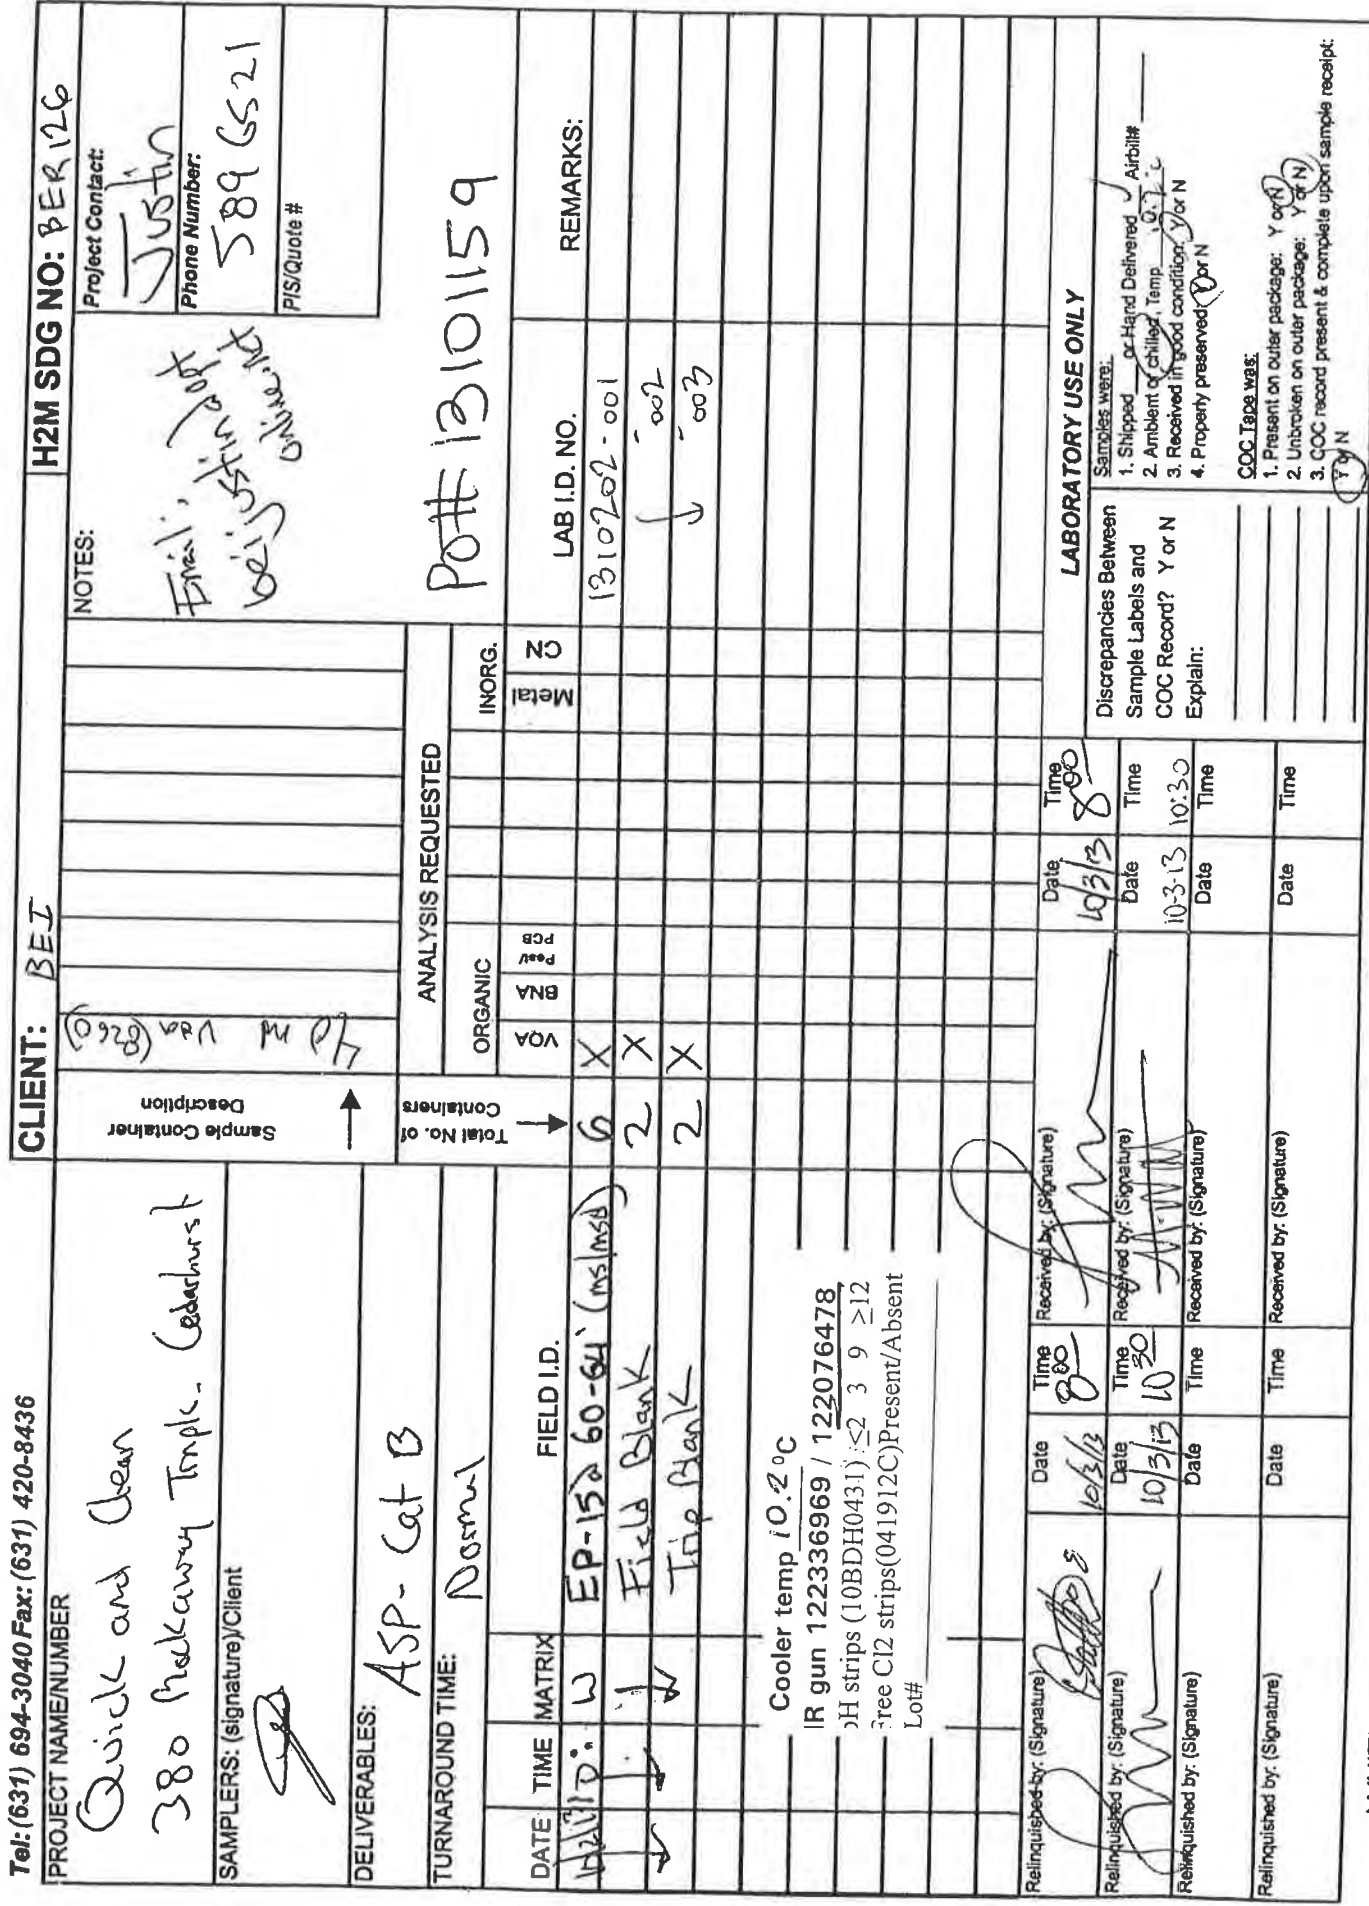 Tel: (631) 694-3040 Fax: (631) 420-8436
CLIENT: BEI
H2M SDG NO: BER126
PROJECT NAME/NUMBER
Quick and Clean
380 Rockaway Tnpk - Cedarhurst
SAMPLERS: (signature)/Client
DELIVERABLES:
ASP- Cat B
TURNAROUND TIME:
Normal
Sample Container
Description
40 ml VOA (8260)
NOTES:
Email:
Project Contact:
Justin
Phone Number:
589 6521
PIS/Quote #
ANALYSIS REQUESTED
ORGANIC
INORG.
DATE
TIME
MATRIX
FIELD I.D.
Total No. of
Containers
VOA
BNA
Pest/
PCB
Metal
CN
LAB I.D. NO.
REMARKS:
W EP-15D 60-64' (ms/msd) 6 X 1310202-001
Field Blank 2 X -002
Trip Blank 2 X -003
Cooler temp 10.2 °C
IR gun 122336969 / 122076478
pH strips (10BDH0431) ≤2 3 9 ≥12
Free Cl2 strips(041912C)Present/Absent
Lot#
Relinquished by: (Signature)
Date
10/3/13
Time
800
Received by: (Signature)
Date
10/3/13
Time
800
Relinquished by: (Signature)
Date
10/3/13
Time
1030
Received by: (Signature)
Date
10-3-13
Time
10:30
Relinquished by: (Signature)
Date
Time
Received by: (Signature)
Date
Time
Relinquished by: (Signature)
Date
Time
Received by: (Signature)
Date
Time
LABORATORY USE ONLY
Discrepancies Between
Sample Labels and
COC Record? Y or N
Explain:
Samples were:
1. Shipped or Hand Delivered ✓ Airbill#
2. Ambient or chilled, Temp 10.2°C
3. Received in good condition: Y or N
4. Properly preserved: Y or N
COC Tape was:
1. Present on outer package: Y or N
2. Unbroken on outer package: Y or N
3. COC record present & complete upon sample receipt:
Y or N